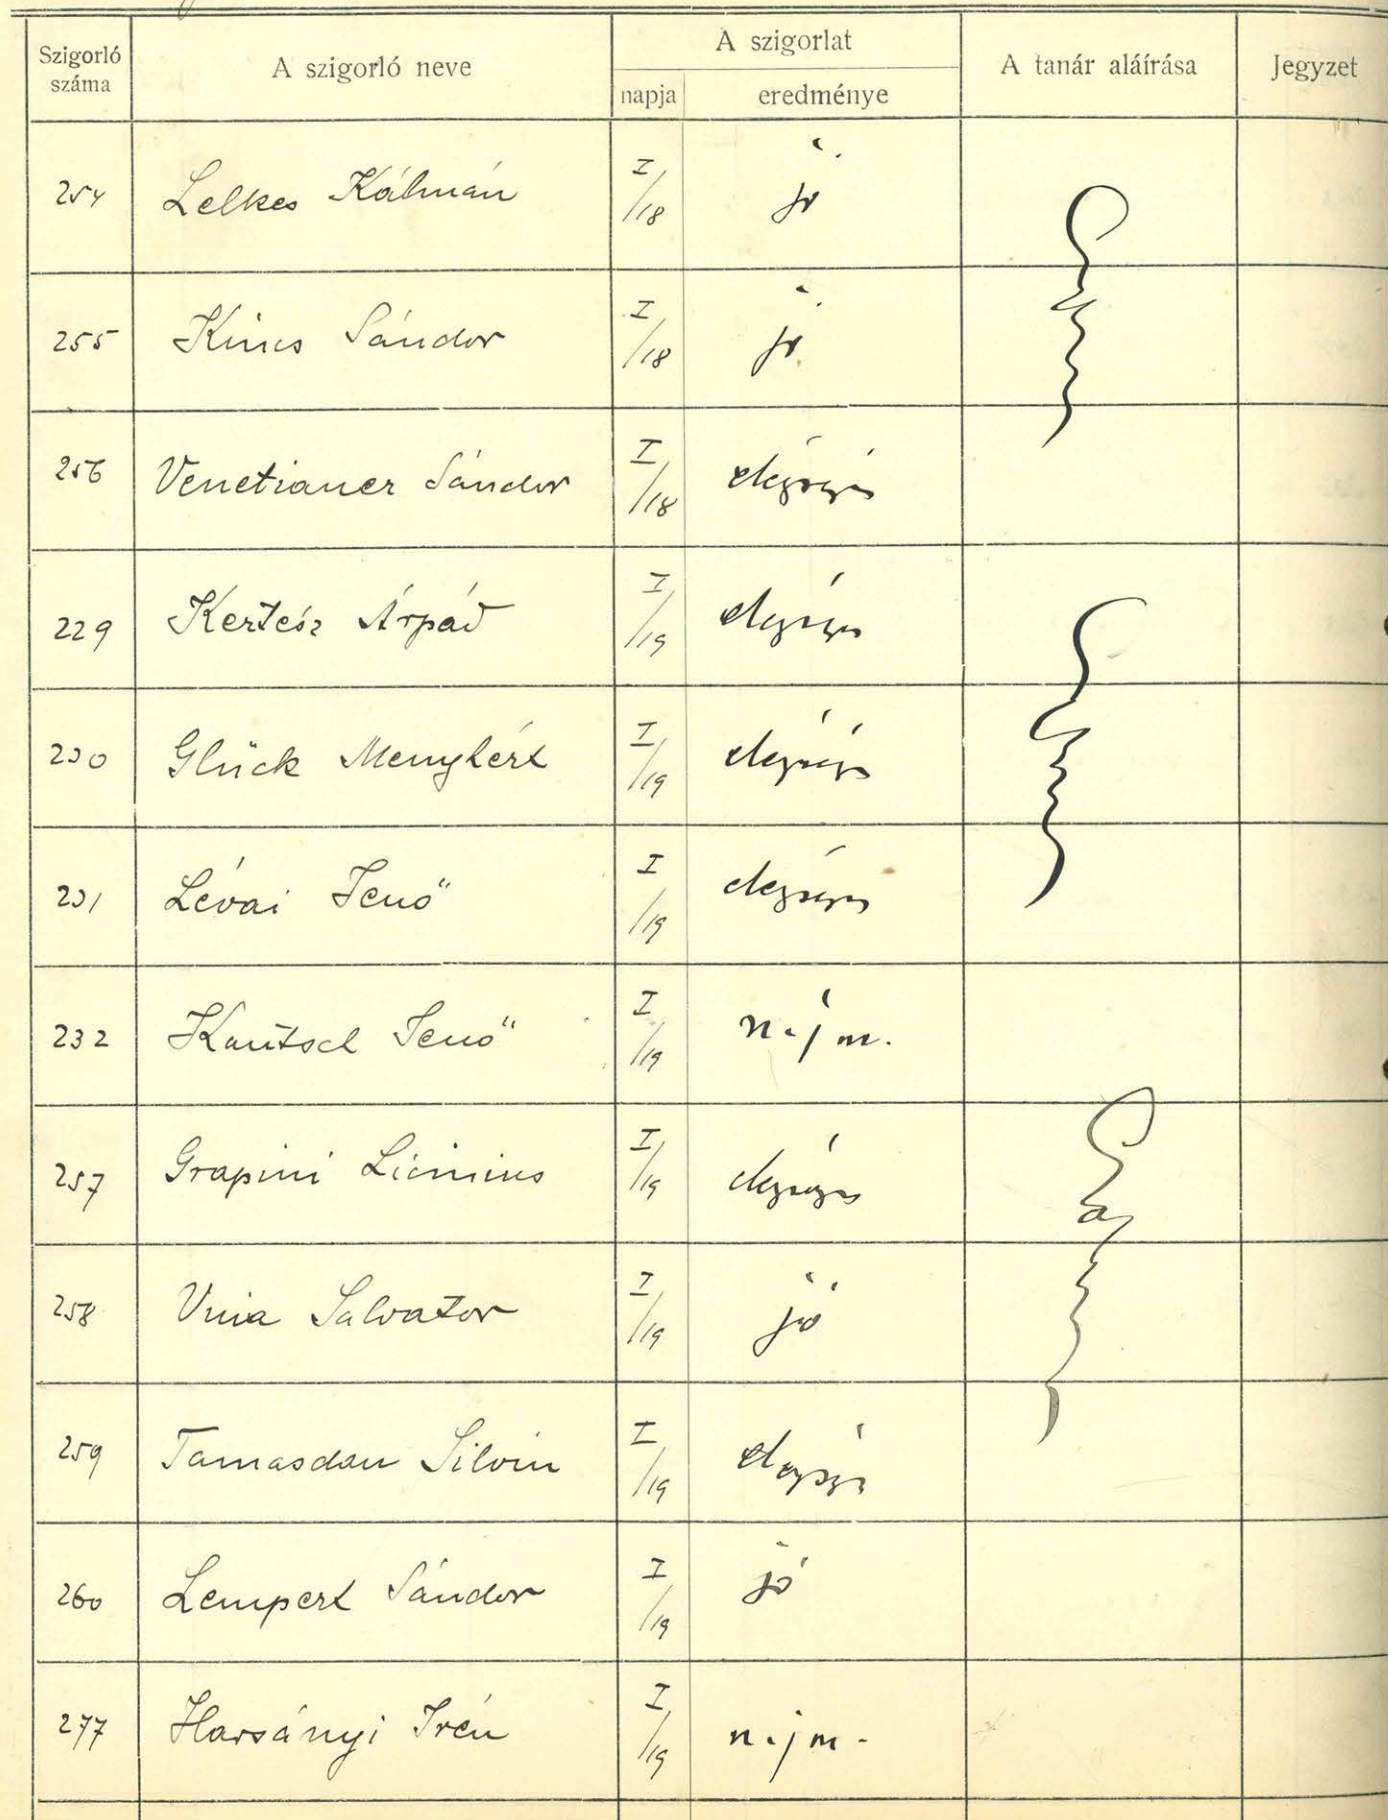 Szigorló száma | A szigorló neve | A szigorlat napja | A szigorlat eredménye | A tanár aláírása | Jegyzet
254 Lelkes Kálmán I/18 jó
255 Kincs Sándor I/18 jó
256 Venetianer Sándor I/18 elégséges
229 Kertész Árpád I/19 elégséges
230 Glück Menyhért I/19 elégséges
231 Lévai Jenő I/19 elégséges
232 Jenő I/19 n. j m.
257 Grapini Licinius I/19 elégséges
258 Salvator I/19 jó
259 Tamasdan Silvin I/19 elégséges
260 Lempert Sándor I/19 jó
277 Harsányi Irén I/19 n. j m.